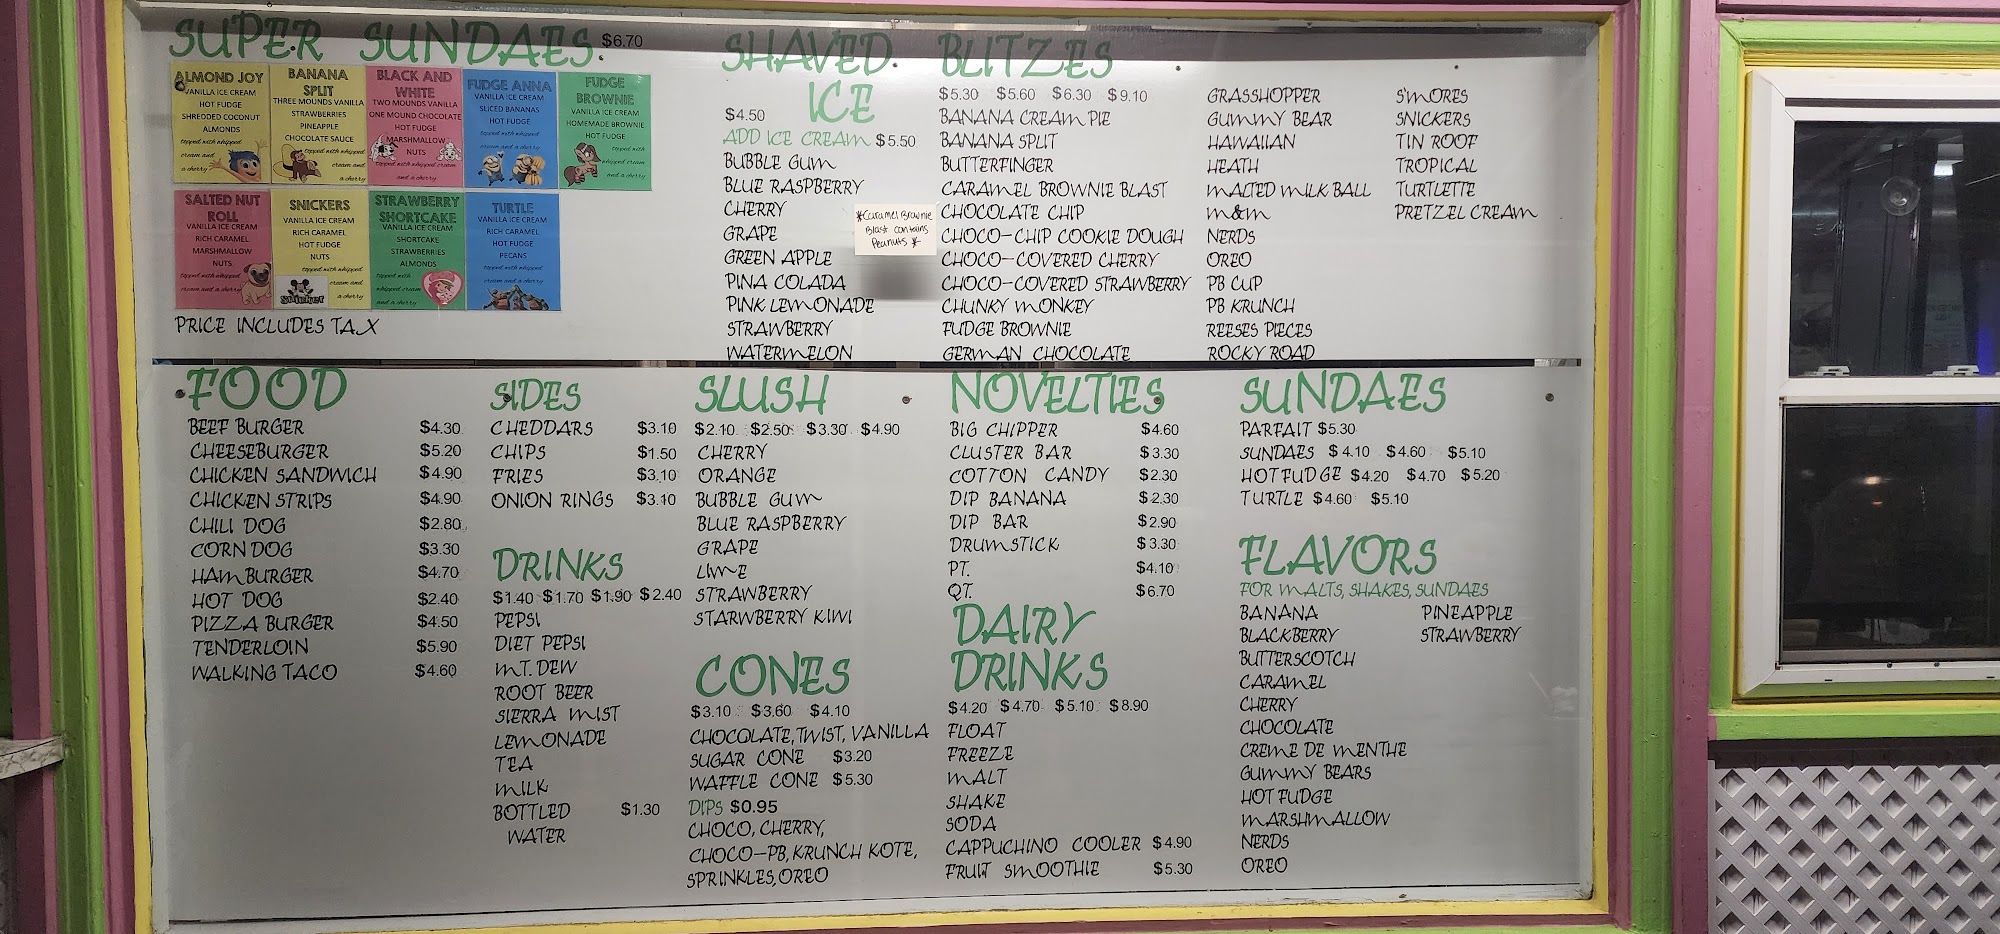 SUPER SUNDAES $6.70
ALMOND JOY
VANILLA ICE CREAM
HOT FUDGE
SHREDDED COCONUT
ALMONDS
topped with whipped
cream and
a cherry
BANANA
SPLIT
THREE MOUNDS VANILLA
STRAWBERRIES
PINEAPPLE
CHOCOLATE SAUCE
topped with whipped
cream and
a cherry
BLACK AND
WHITE
TWO MOUNDS VANILLA
ONE MOUND CHOCOLATE
HOT FUDGE
MARSHMALLOW
NUTS
topped with whipped cream
and a cherry
FUDGE ANNA
VANILLA ICE CREAM
SLICED BANANAS
HOT FUDGE
topped with whipped
cream and a cherry
FUDGE
BROWNIE
VANILLA ICE CREAM
HOMEMADE BROWNIE
HOT FUDGE
topped with
whipped cream
and a cherry
SALTED NUT
ROLL
VANILLA ICE CREAM
RICH CARAMEL
MARSHMALLOW
NUTS
topped with whipped
cream and a cherry
SNICKERS
VANILLA ICE CREAM
RICH CARAMEL
HOT FUDGE
NUTS
topped with whipped
cream and
a cherry
STRAWBERRY
SHORTCAKE
VANILLA ICE CREAM
SHORTCAKE
STRAWBERRIES
ALMONDS
topped with
whipped cream
and a cherry
TURTLE
VANILLA ICE CREAM
RICH CARAMEL
HOT FUDGE
PECANS
topped with whipped
cream and a cherry
PRICE INCLUDES TAX
SHAVED
ICE
$4.50
ADD ICE CREAM $5.50
BUBBLE GUM
BLUE RASPBERRY
CHERRY
GRAPE
GREEN APPLE
PINA COLADA
PINK LEMONADE
STRAWBERRY
WATERMELON
*Caramel Brownie
Blast contains
Peanuts *
BLITZES
$5.30 $5.60 $6.30 $9.10
BANANA CREAM PIE
BANANA SPLIT
BUTTERFINGER
CARAMEL BROWNIE BLAST
CHOCOLATE CHIP
CHOCO-CHIP COOKIE DOUGH
CHOCO-COVERED CHERRY
CHOCO-COVERED STRAWBERRY
CHUNKY MONKEY
FUDGE BROWNIE
GERMAN CHOCOLATE
GRASSHOPPER
GUMMY BEAR
HAWAIIAN
HEATH
MALTED MILK BALL
M&M
NERDS
OREO
PB CUP
PB KRUNCH
REESES PIECES
ROCKY ROAD
S'MORES
SNICKERS
TIN ROOF
TROPICAL
TURTLETTE
PRETZEL CREAM
FOOD
BEEF BURGER $4.30
CHEESEBURGER $5.20
CHICKEN SANDWICH $4.90
CHICKEN STRIPS $4.90
CHILI DOG $2.80
CORN DOG $3.30
HAMBURGER $4.70
HOT DOG $2.40
PIZZA BURGER $4.50
TENDERLOIN $5.90
WALKING TACO $4.60
SIDES
CHEDDARS $3.10
CHIPS $1.50
FRIES $3.10
ONION RINGS $3.10
DRINKS
$1.40 $1.70 $1.90 $2.40
PEPSI
DIET PEPSI
MT. DEW
ROOT BEER
SIERRA MIST
LEMONADE
TEA
MILK
BOTTLED $1.30
WATER
SLUSH
$2.10 $2.50 $3.30 $4.90
CHERRY
ORANGE
BUBBLE GUM
BLUE RASPBERRY
GRAPE
LIME
STRAWBERRY
STARWBERRY KIWI
CONES
$3.10 $3.60 $4.10
CHOCOLATE, TWIST, VANILLA
SUGAR CONE $3.20
WAFFLE CONE $5.30
DIPS $0.95
CHOCO, CHERRY,
CHOCO-PB, KRUNCH KOTE,
SPRINKLES, OREO
NOVELTIES
BIG CHIPPER $4.60
CLUSTER BAR $3.30
COTTON CANDY $2.30
DIP BANANA $2.30
DIP BAR $2.90
DRUMSTICK $3.30
PT. $4.10
QT. $6.70
DAIRY
DRINKS
$4.20 $4.70 $5.10 $8.90
FLOAT
FREEZE
MALT
SHAKE
SODA
CAPPUCHINO COOLER $4.90
FRUIT SMOOTHIE $5.30
SUNDAES
PARFAIT $5.30
SUNDAES $4.10 $4.60 $5.10
HOT FUDGE $4.20 $4.70 $5.20
TURTLE $4.60 $5.10
FLAVORS
FOR MALTS, SHAKES, SUNDAES
BANANA
BLACKBERRY
BUTTERSCOTCH
CARAMEL
CHERRY
CHOCOLATE
CREME DE MENTHE
GUMMY BEARS
HOT FUDGE
MARSHMALLOW
NERDS
OREO
PINEAPPLE
STRAWBERRY